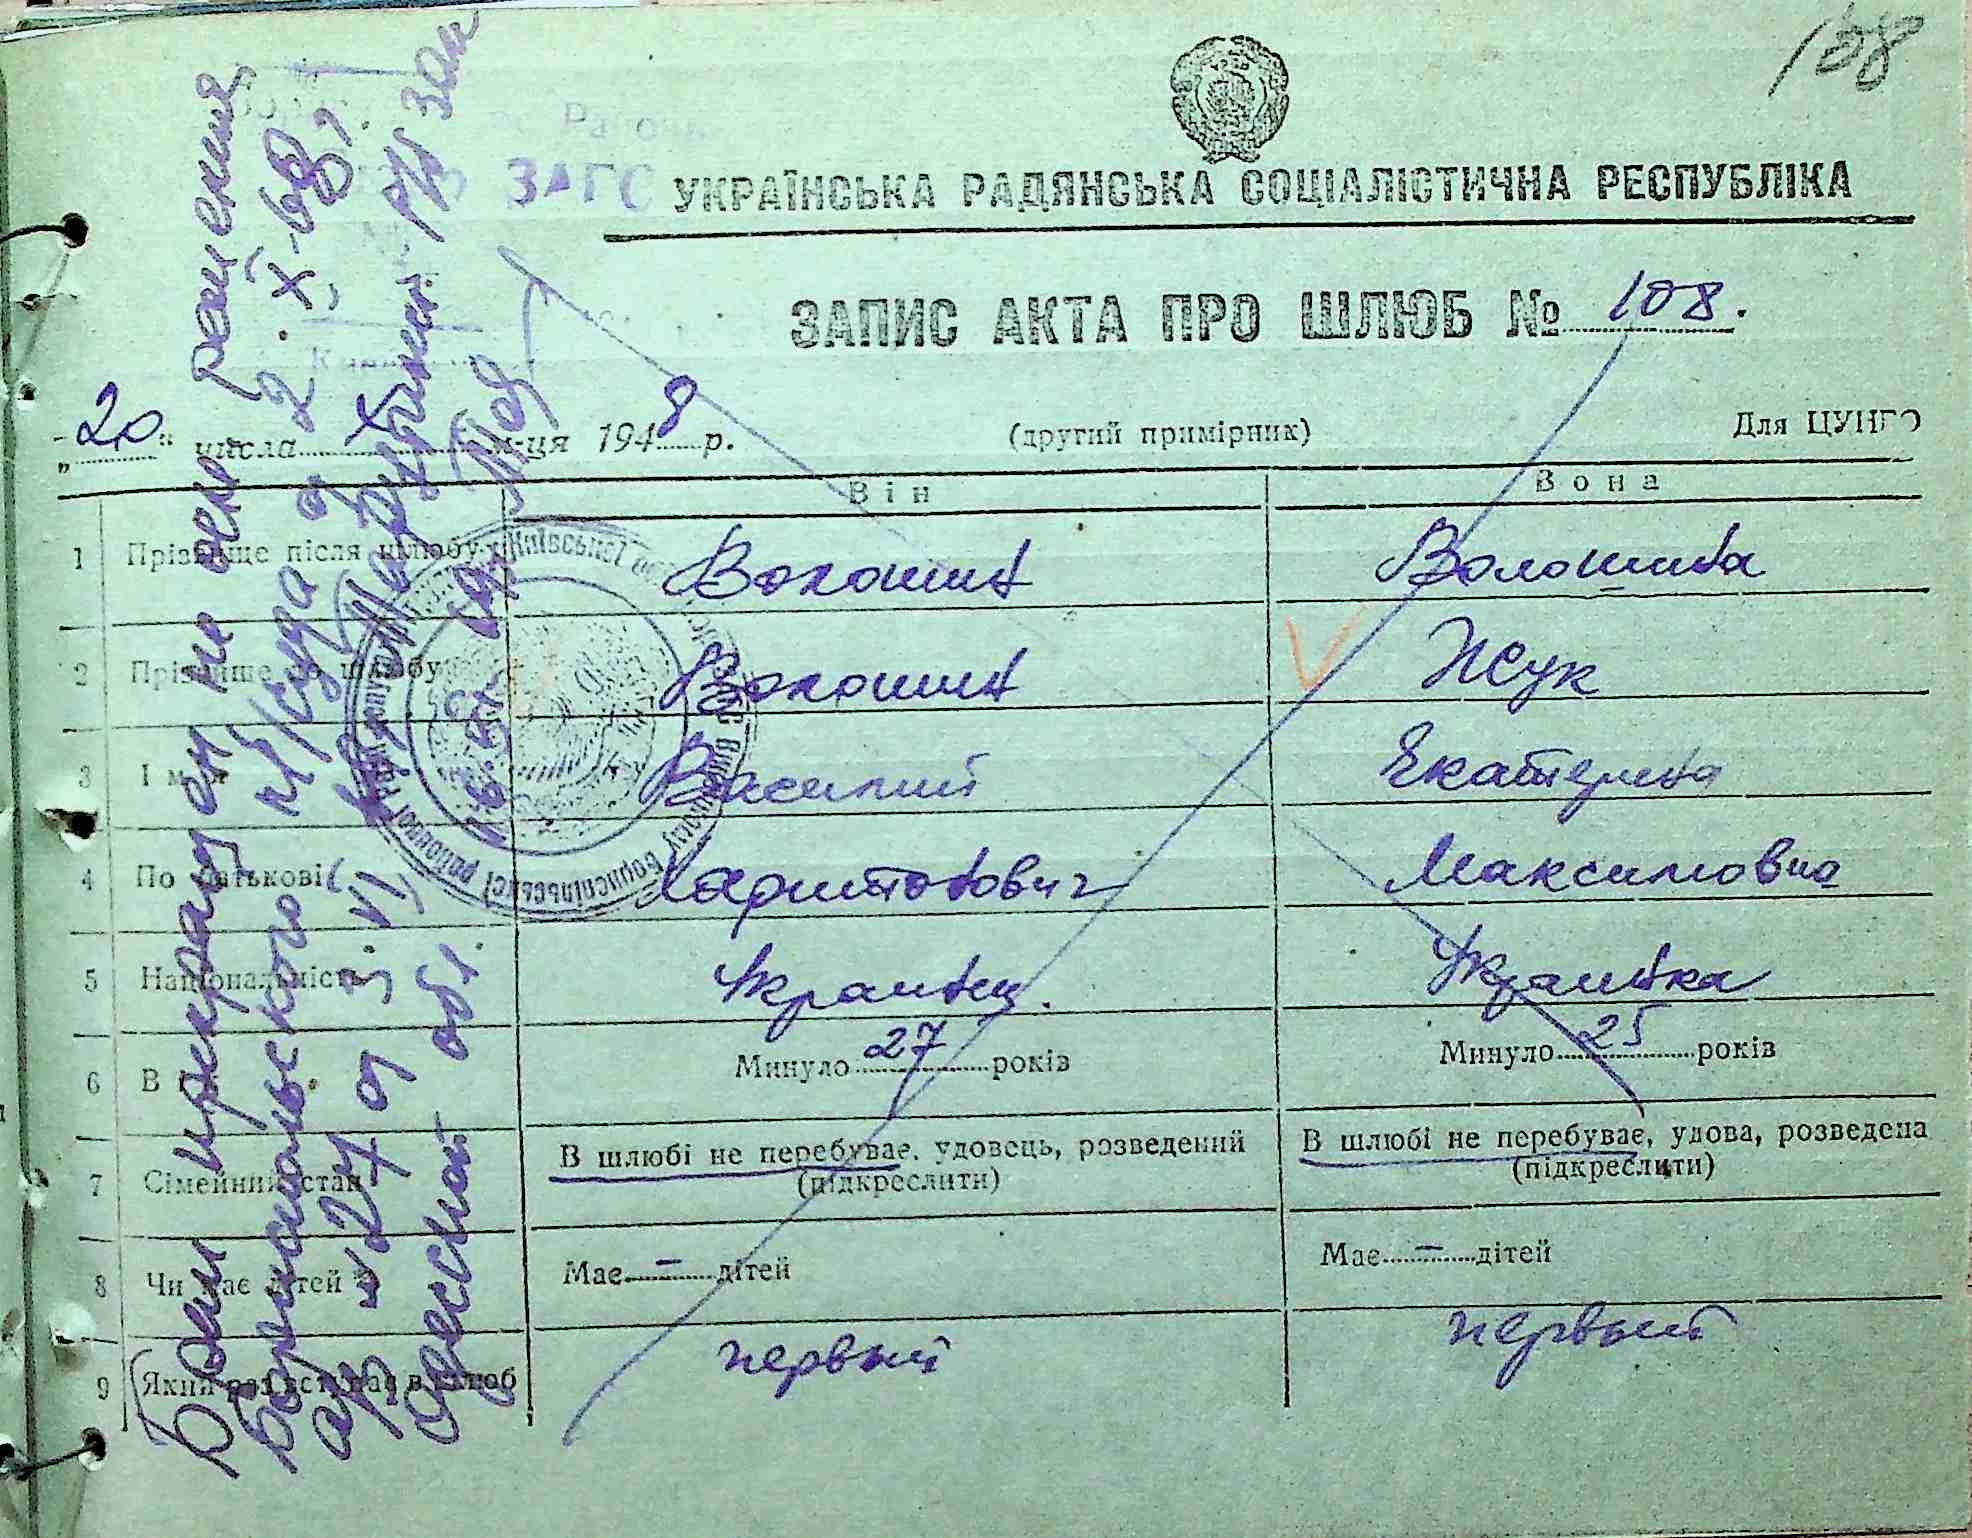 108
ЗАГС
УКРАЇНСЬКА РАДЯНСЬКА СОЦІАЛІСТИЧНА РЕСПУБЛІКА
ЗАПИС АКТА ПРО ШЛЮБ № 108.
„20" числа X м-ця 1948 р. (другий примірник) Для ЦУНГО
Він Вона
1 Прізвище після шлюбу Волошин Волошина
2 Прізвище до шлюбу Волошин Жук
3 Ім'я Василий Екатерина
4 По батькові Харитонович Максимовна
5 Національність Украинец. Украинка
6 Вік Минуло 27 років Минуло 25 років
7 Сімейний стан В шлюбі не перебуває, удовець, розведений (підкреслити) В шлюбі не перебуває, удова, розведена (підкреслити)
8 Чи має дітей Має – дітей Має – дітей
9 Який раз вступає в шлюб первый первый
Брак прекращен на осн решения
Бориспольского н/суда от 2.X-68г.
а/з №27 от
одесской обл.